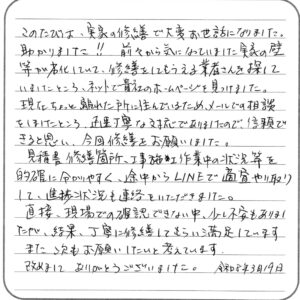 このたびは、実家の修繕で大変お世話になりました。
助かりました!! 前々から気になっていました実家の壁
等が劣化していて、修繕をしてもらえる業者さんを探して
いましたところ、ネットで貴社のホームページを見つけました。
現在ちょっと離れた所に住んでいるため、メールでの相談
をしましたところ、迅速丁寧な対応でありましたので、信頼で
きると思い、今回修繕をお願いしました。
見積書、修繕箇所、工事施工作業中の状況等を
的確に分かりやすく、途中からLINEで適宜やり取り
して、進捗状況も連絡をいただきました。
直接、現場での確認できない中、少し不安もありまし
たが、結果、丁寧に修繕してもらい満足しています
また次もお願いしたいと考えています。
改めまして ありがとうございました。 令和8年3月19日